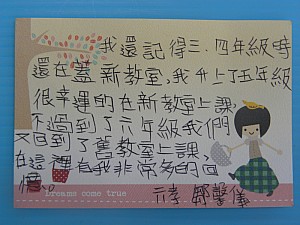 我還記得三.四年級時
還在蓋新教室,我升上了五年級
很幸運的在新教室上課,
不過到了六年級我們
又回到了舊教室上課,
在這裡有我非常多的回
憶。
Dreams come true
六孝 鄒馨儀